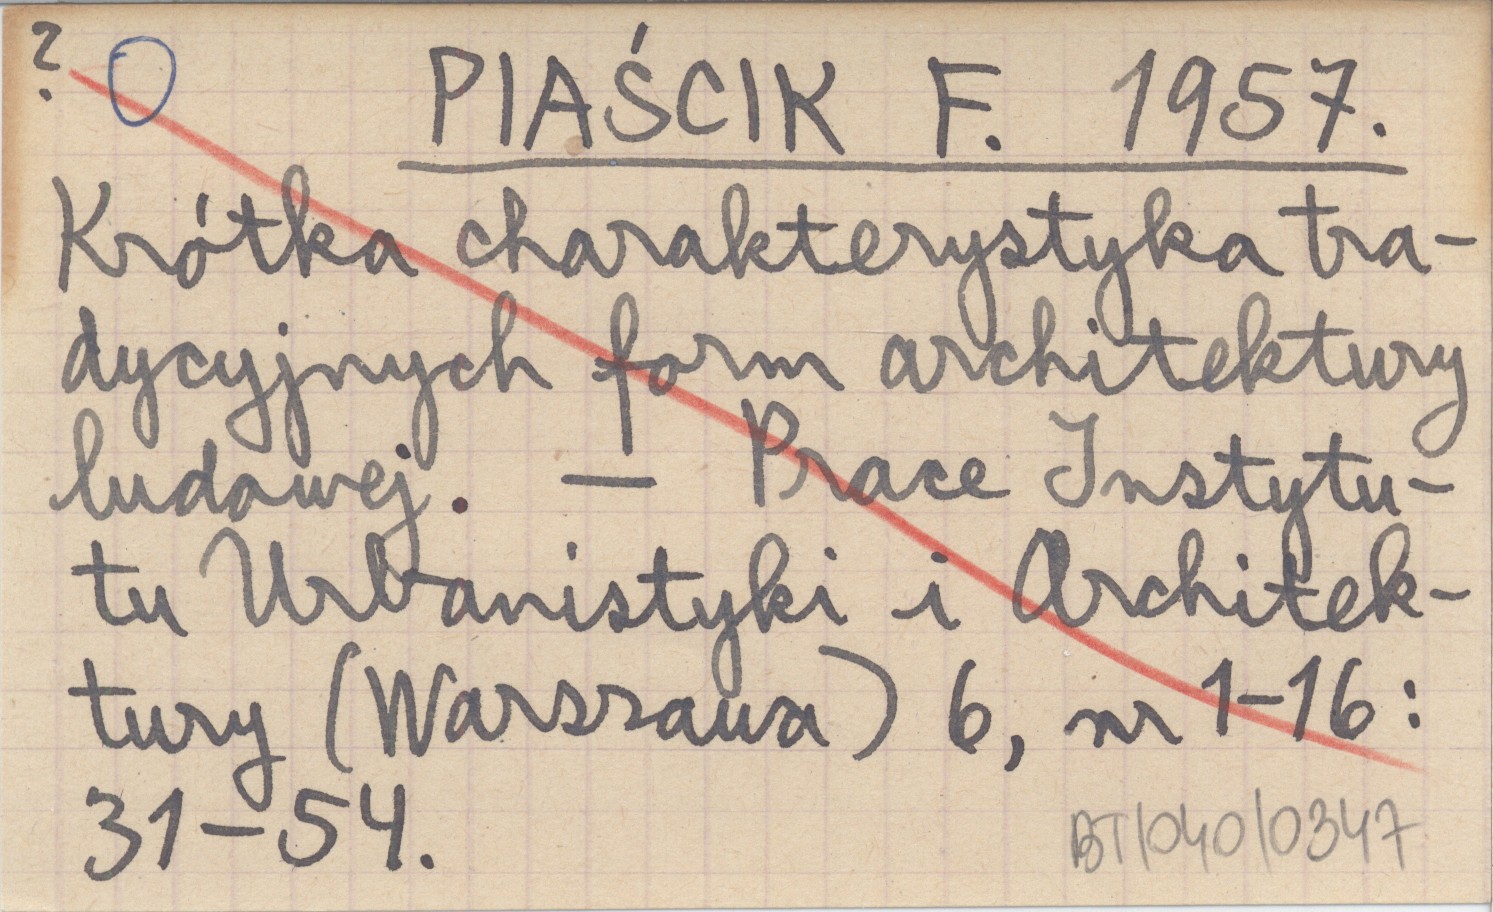 ?
PIAŚCIK F. 1957.
Krótka charakterystyka tra-
dycyjnych form architektury
ludowej. — Prace Instytu-
tu Urbanistyki i Architek-
tury (Warszawa) 6, nr 1-16:
31-54.
BT/040/0347